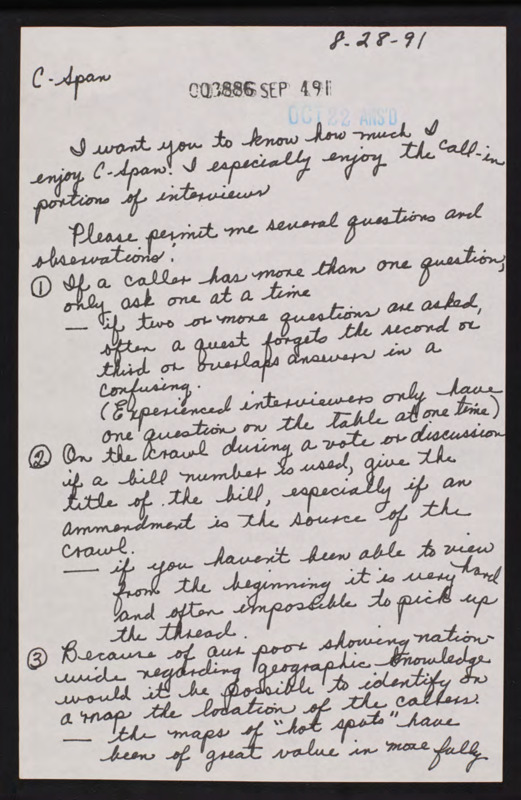 8-28-91
C-Span
003886 SEP 4 91
OCT 22 ANS'D
I want you to know how much I
enjoy C-Span! I especially enjoy the call-in
portions of interviews
Please permit me several questions and
observations:
① If a caller has more than one question,
only ask one at a time
— if two or more questions are asked,
often a guest forgets the second or
third or overlaps answers in a
confusing.
(Experienced interviewers only have
one question on the table at one time)
② On the crawl during a vote or discussion
if a bill number is used, give the
title of the bill, especially if an
ammendment is the source of the
crawl.
— if you haven't been able to view
from the beginning it is very hard
and often impossible to pick up
the thread.
③ Because of our poor showing nation-
wide regarding geographic knowledge
would it be possible to identify on
a map the location of the callers.
— the maps of "hot spots" have
been of great value in more fully